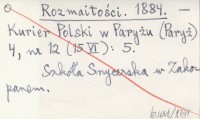 Rozmaitości. 1884. —
Kurier Polski w Paryżu (Paryż)
4, nr 12 (15 VI) : 5.
Szkoła Snycerska w Zako-
panem.